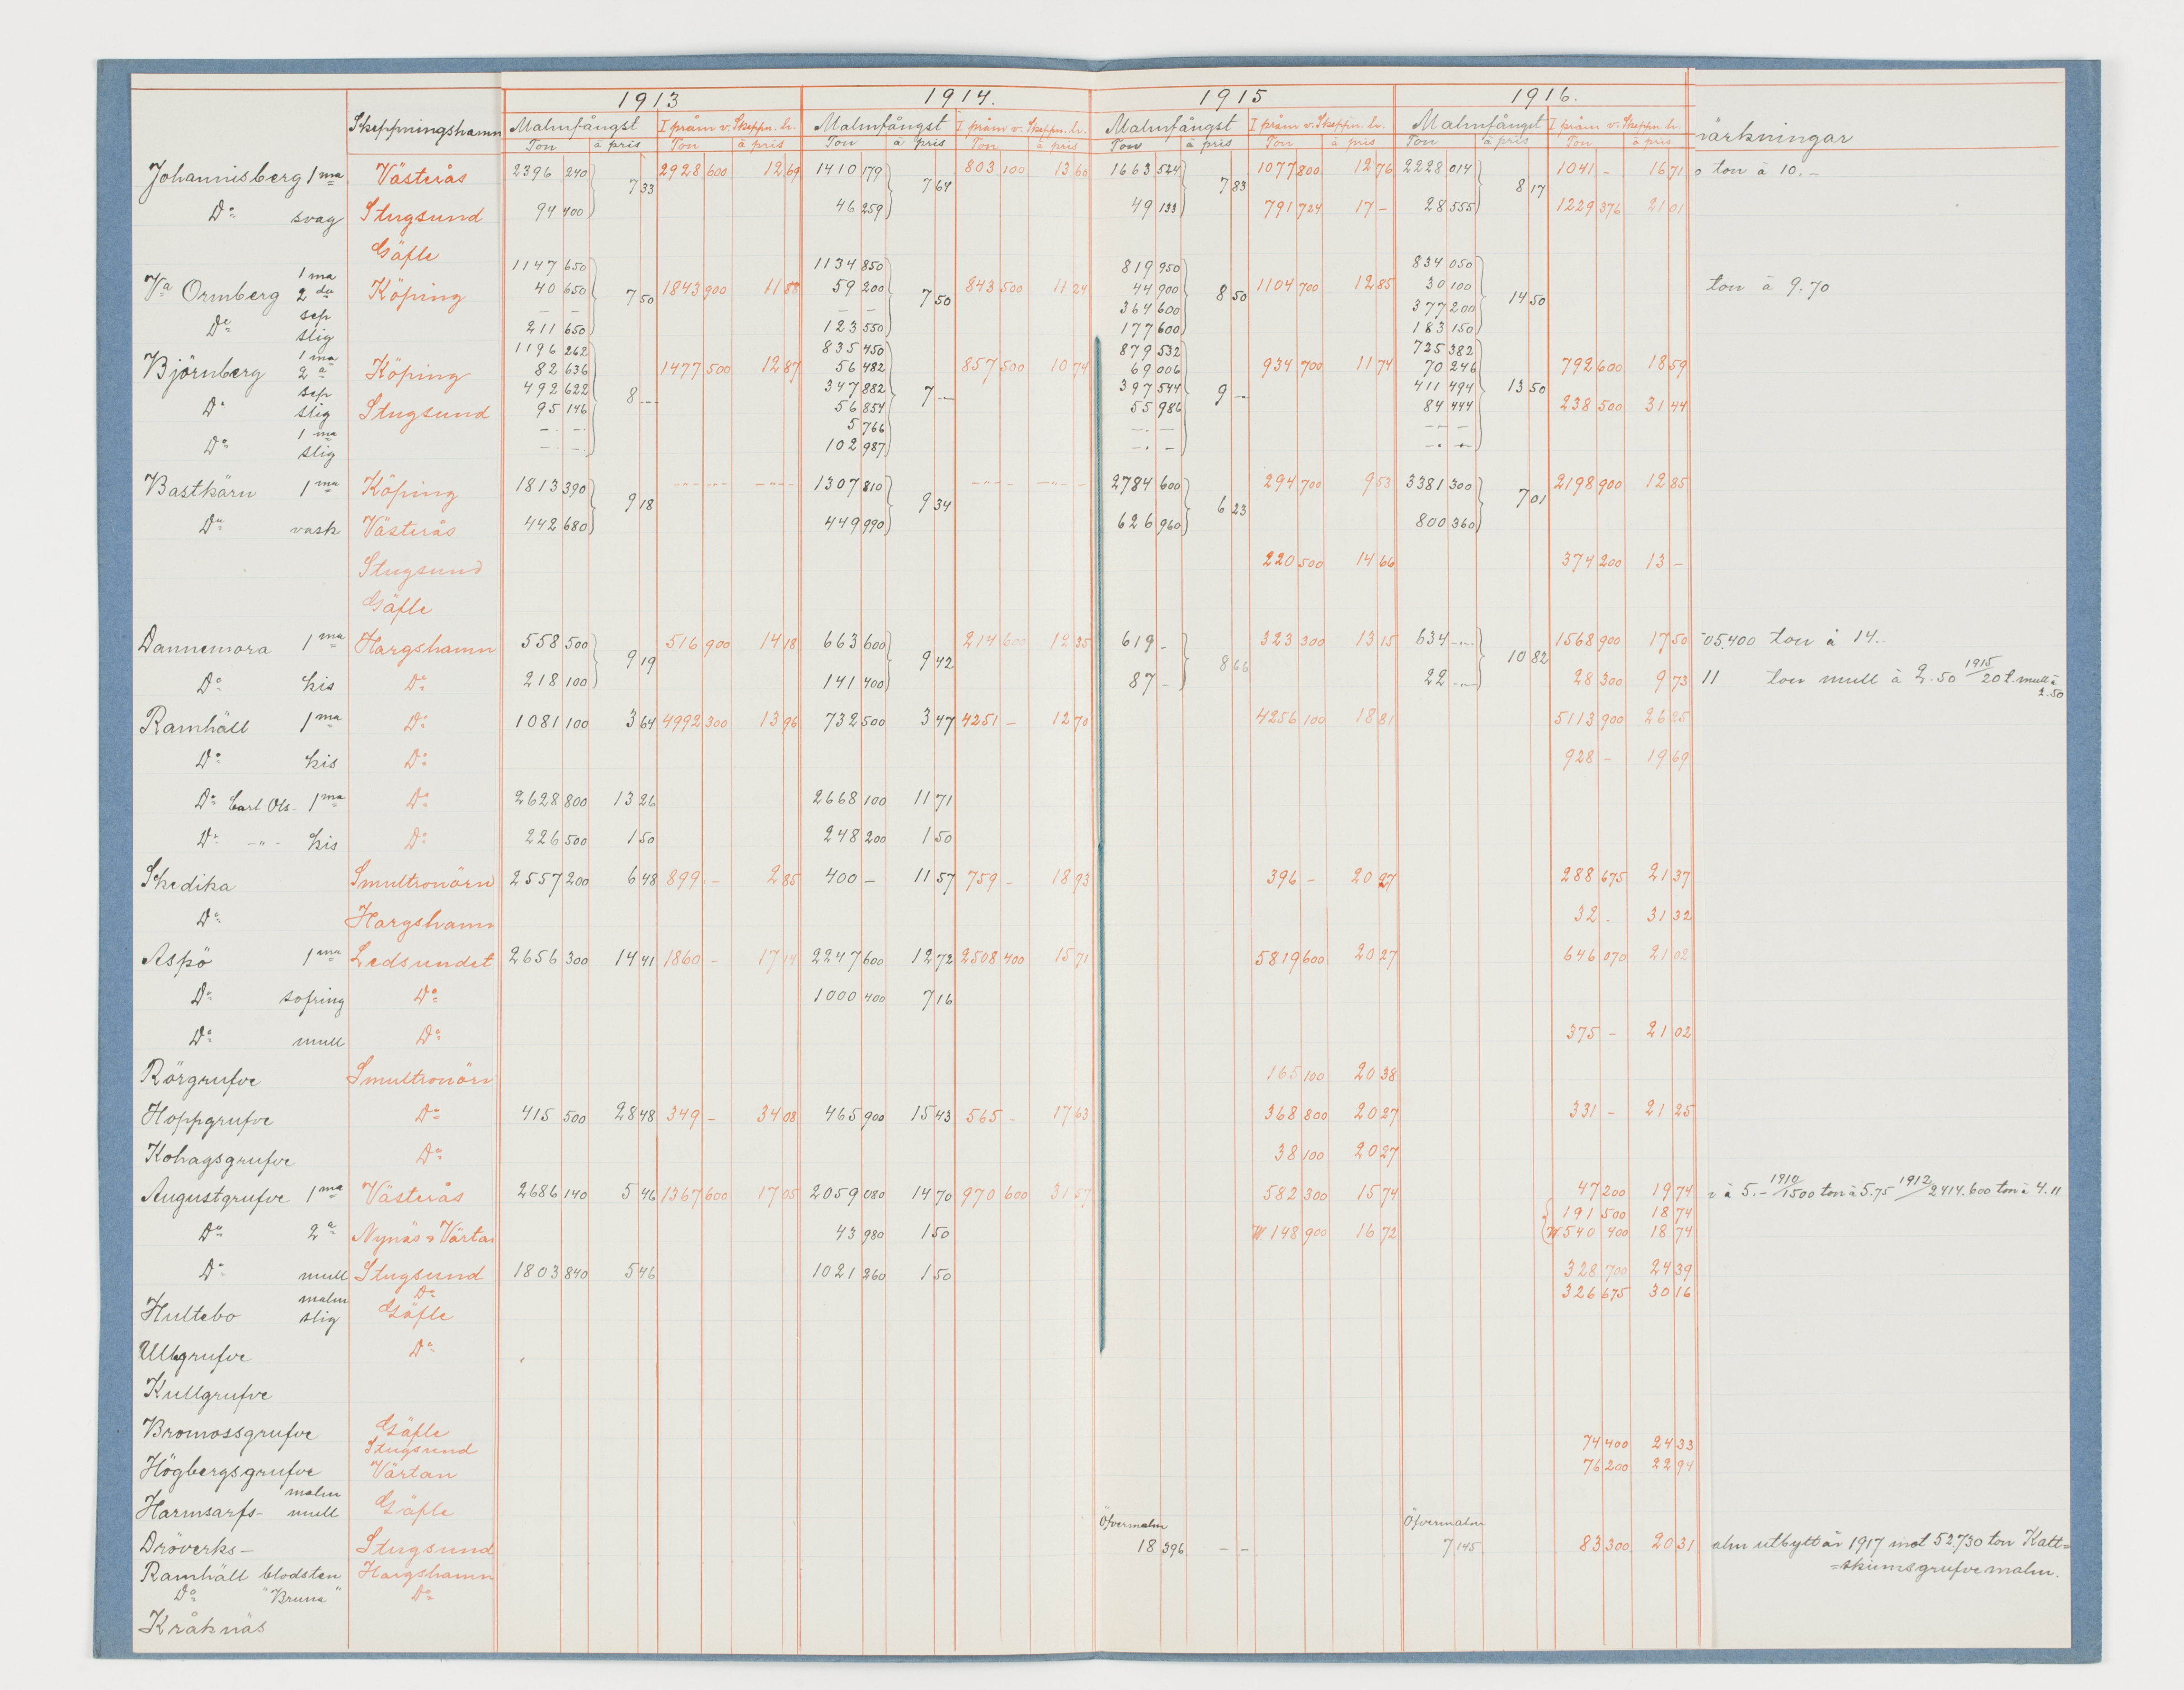 1913 1914. 1915 1916.
Skeppningshamn Malmfångst I pråm v. Skeppn. h. Malmfångst I pråm v. Skeppn. h. Malmfångst I pråm v. Skeppn. h. Malmfångst I pråm v. Skeppn. h. märkningar
Ton à pris Ton à pris Ton à pris Ton à pris Ton à pris Ton à pris Ton à pris Ton à pris
Johannisberg 1ma Västerås 2396 240 7 33 2928 600 12 69 1410 179 7 64 803 100 13 60 1663 524 7 83 1077 800 12 76 2228 014 8 17 1041 - 16 71 ton à 10.-
Do svag Stugsund 94 400 46 259 49 133 791 724 17 - 28 555 1229 376 21 01
Gäfle
Va Ormberg 1ma 1147 650 1134 850 819 950 834 050
2da Köping 40 650 7 50 1843 900 11 88 59 200 7 50 843 500 11 24 44 900 8 50 1104 700 12 85 30 100 14 50 ton à 9.70
Do sep - - - - 364 600 377 200
slig 211 650 123 550 177 600 183 150
Björnberg 1ma 1196 262 835 450 879 532 725 382
2a Köping 82 636 1477 500 12 87 56 482 857 500 10 74 69 006 934 700 11 74 70 246 792 600 18 59
Do sep 492 622 8 -- 347 882 7 -- 397 544 9 -- 411 494 13 50
slig Stugsund 95 146 56 854 55 986 84 444 238 500 31 44
Do 1ma - - 5 766 - - - -
slig - - 102 987 - - - -
Bastkärn 1ma Köping 1813 390 9 18 ---- ---- 1307 810 9 34 ---- ---- 2784 600 6 23 294 700 9 53 3381 300 7 01 2198 900 12 85
Do vask Västerås 442 680 449 990 626 960 800 360
Stugsund 220 500 14 66 374 200 13 -
Gäfle
Dannemora 1ma Hargshamn 558 500 9 19 516 900 14 18 663 600 9 42 214 600 12 35 619 - 8 66 323 300 13 15 634 -- 10 82 1568 900 17 50 05.400 ton à 14..
Do kis Do 218 100 141 400 87 - 22 -- 28 300 9 73 11 ton mull à 2.50 1915/20 t. mull à 2.50
Ramhäll 1ma Do 1081 100 3 64 4992 300 13 96 732 500 3 47 4251 - 12 70 4256 100 18 81 5113 900 26 25
Do kis Do 928 - 19 69
Do Carl Ols- 1ma Do 2628 800 13 26 2668 100 11 71
Do -"- kis Do 226 500 1 50 248 200 1 50
Skedika Smultronörn 2557 200 6 48 899 - 2 85 400 - 11 57 759 - 18 93 396 - 20 27 288 675 21 37
Do Hargshamn 32 - 31 32
Aspö 1ma Ledsundet 2656 300 14 41 1860 - 17 14 2247 600 12 72 2508 400 15 71 5819 600 20 27 646 070 21 02
Do sofring Do 1000 400 7 16
Do mull Do 375 - 21 02
Rörgrufve Smultronörn 165 100 20 38
Hoppgrufve Do 415 500 28 48 349 - 34 08 465 900 15 43 565 - 17 63 368 800 20 27 331 - 21 25
Kohagsgrufve Do 38 100 20 27
Augustgrufve 1ma Västerås 2686 140 5 46 1367 600 17 05 2059 080 14 70 970 600 31 57 582 300 15 74 47 200 19 74 à 5.- 1910/1500 ton à 5.75 1912/2414.600 ton à 4.11
191 500 18 74
Do 2a Nynäs o Värtan 43 980 1 50 W. 148 900 16 72 W. 540 400 18 74
Do mull Stugsund 1803 840 5 46 1021 260 1 50 328 700 24 39
malm Do 326 675 30 16
Hultebo slig Gäfle
Ullagrufve Do
Kullgrufve
Bromossgrufve Gäfle
Stugsund 74 400 24 33
Högbergsgrufve Värtan 76 200 22 94
malm
Harmsarfs- mull Gäfle
Öfvermalm Öfvermalm
Dröverks- Stugsund 18 396 - - 7 145 83 300 20 31 alm utbytt år 1917 mot 52.730 ton Katt=
Ramhäll blodsten Hargshamn =skumsgrufvemalm.
Do "Bruna" Do
Kråknäs